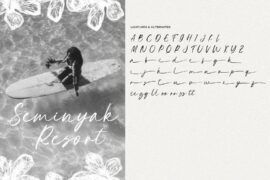 Seminyak
Resort
LIGATURES & ALTERNATES
A B C D E F G H I J K L
M N O P Q R S T U V W X Y Z
a b c d e f g h
i j k l m n o p q
r s t u v w x y z